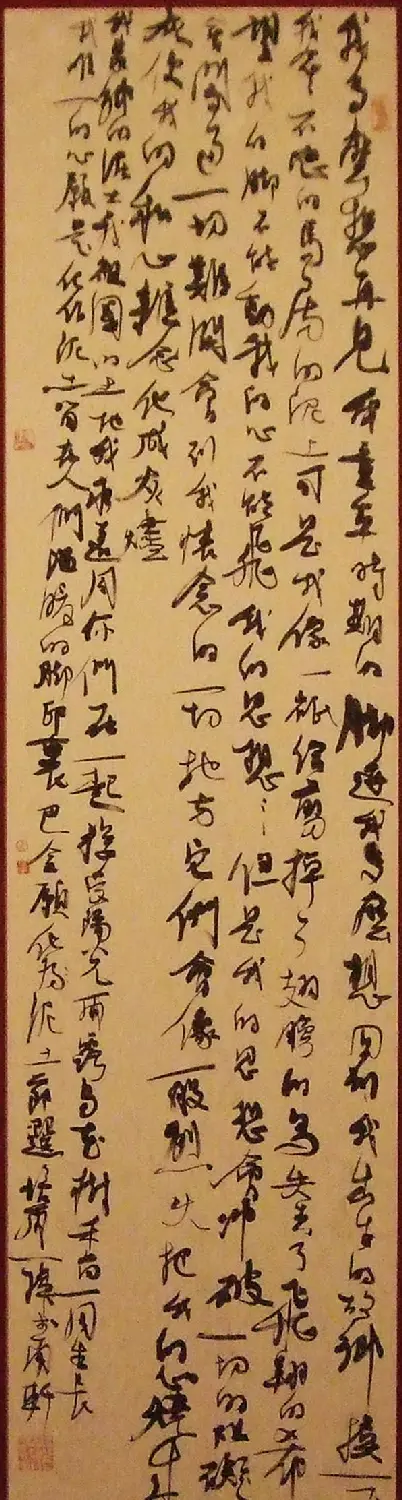 我多麼想再見到童年時期的脚迹我多麼想回到我出生的故鄉摸一下
我念念不忘的馬房的泥土可是我像一隻給剪掉了翅膀的鳥失去了飛翔的希
望我的脚不能動我的心不能飛我的思想…但是我的思想會冲破一切的阻礙
會闖過一切難關會到我懷念的一切地方它們會像一股烈火把我的心燒成
灰使我的私心雜念化成灰燼
我家鄉的泥土我祖國的土地我永遠同你們在一起接受陽光雨露與花樹禾苗一同生長
我唯一的心願是化作泥土留在人們温暖的脚印裏巴金願化為泥土節選